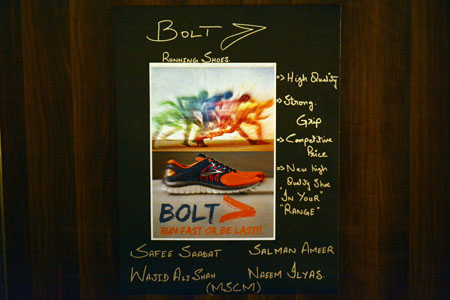 BOLT >
RUNNING SHOES.
-> HIGH QUALITY
-> STRONG
GRIP
-> COMPETITIVE
PRICE
-> NEW HIGH
QUALITY SHOE
"IN YOUR"
"RANGE"
BOLT >
RUN FAST OR BE LAST!!
SAFEE SAADAT
SALMAN AMEER
WAJID ALI SHAH
NAEEM ILYAS.
(MSCM)